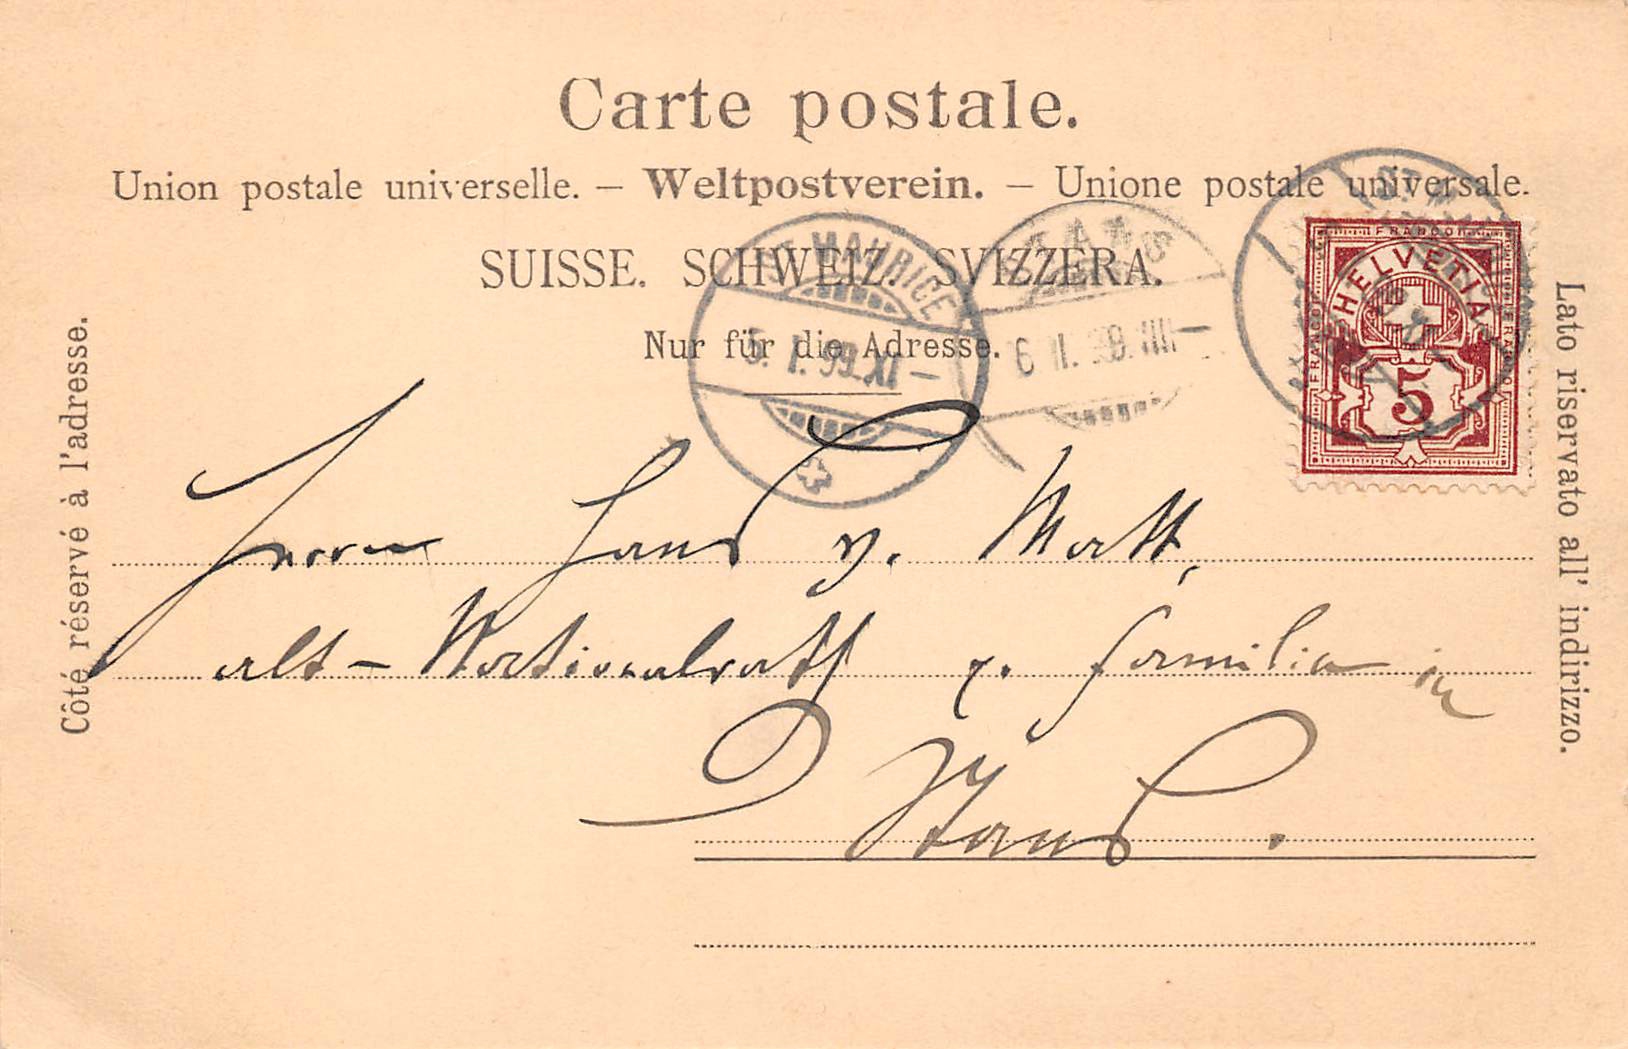 Carte postale.
Union postale universelle. – Weltpostverein. – Unione postale universale.
SUISSE. SCHWEIZ. SVIZZERA.
Nur für die Adresse.
Côté réservé à l'adresse.
Lato riservato all' indirizzo.
ST MAURICE
5. I. 99. XI –
STANS
6 I. 99. IIII –
FRANCO
HELVETIA
FRANCO
FRANCO
5
Herrn Hans v. Matt,
alt – Nationalrath &. Familie in
Stans.